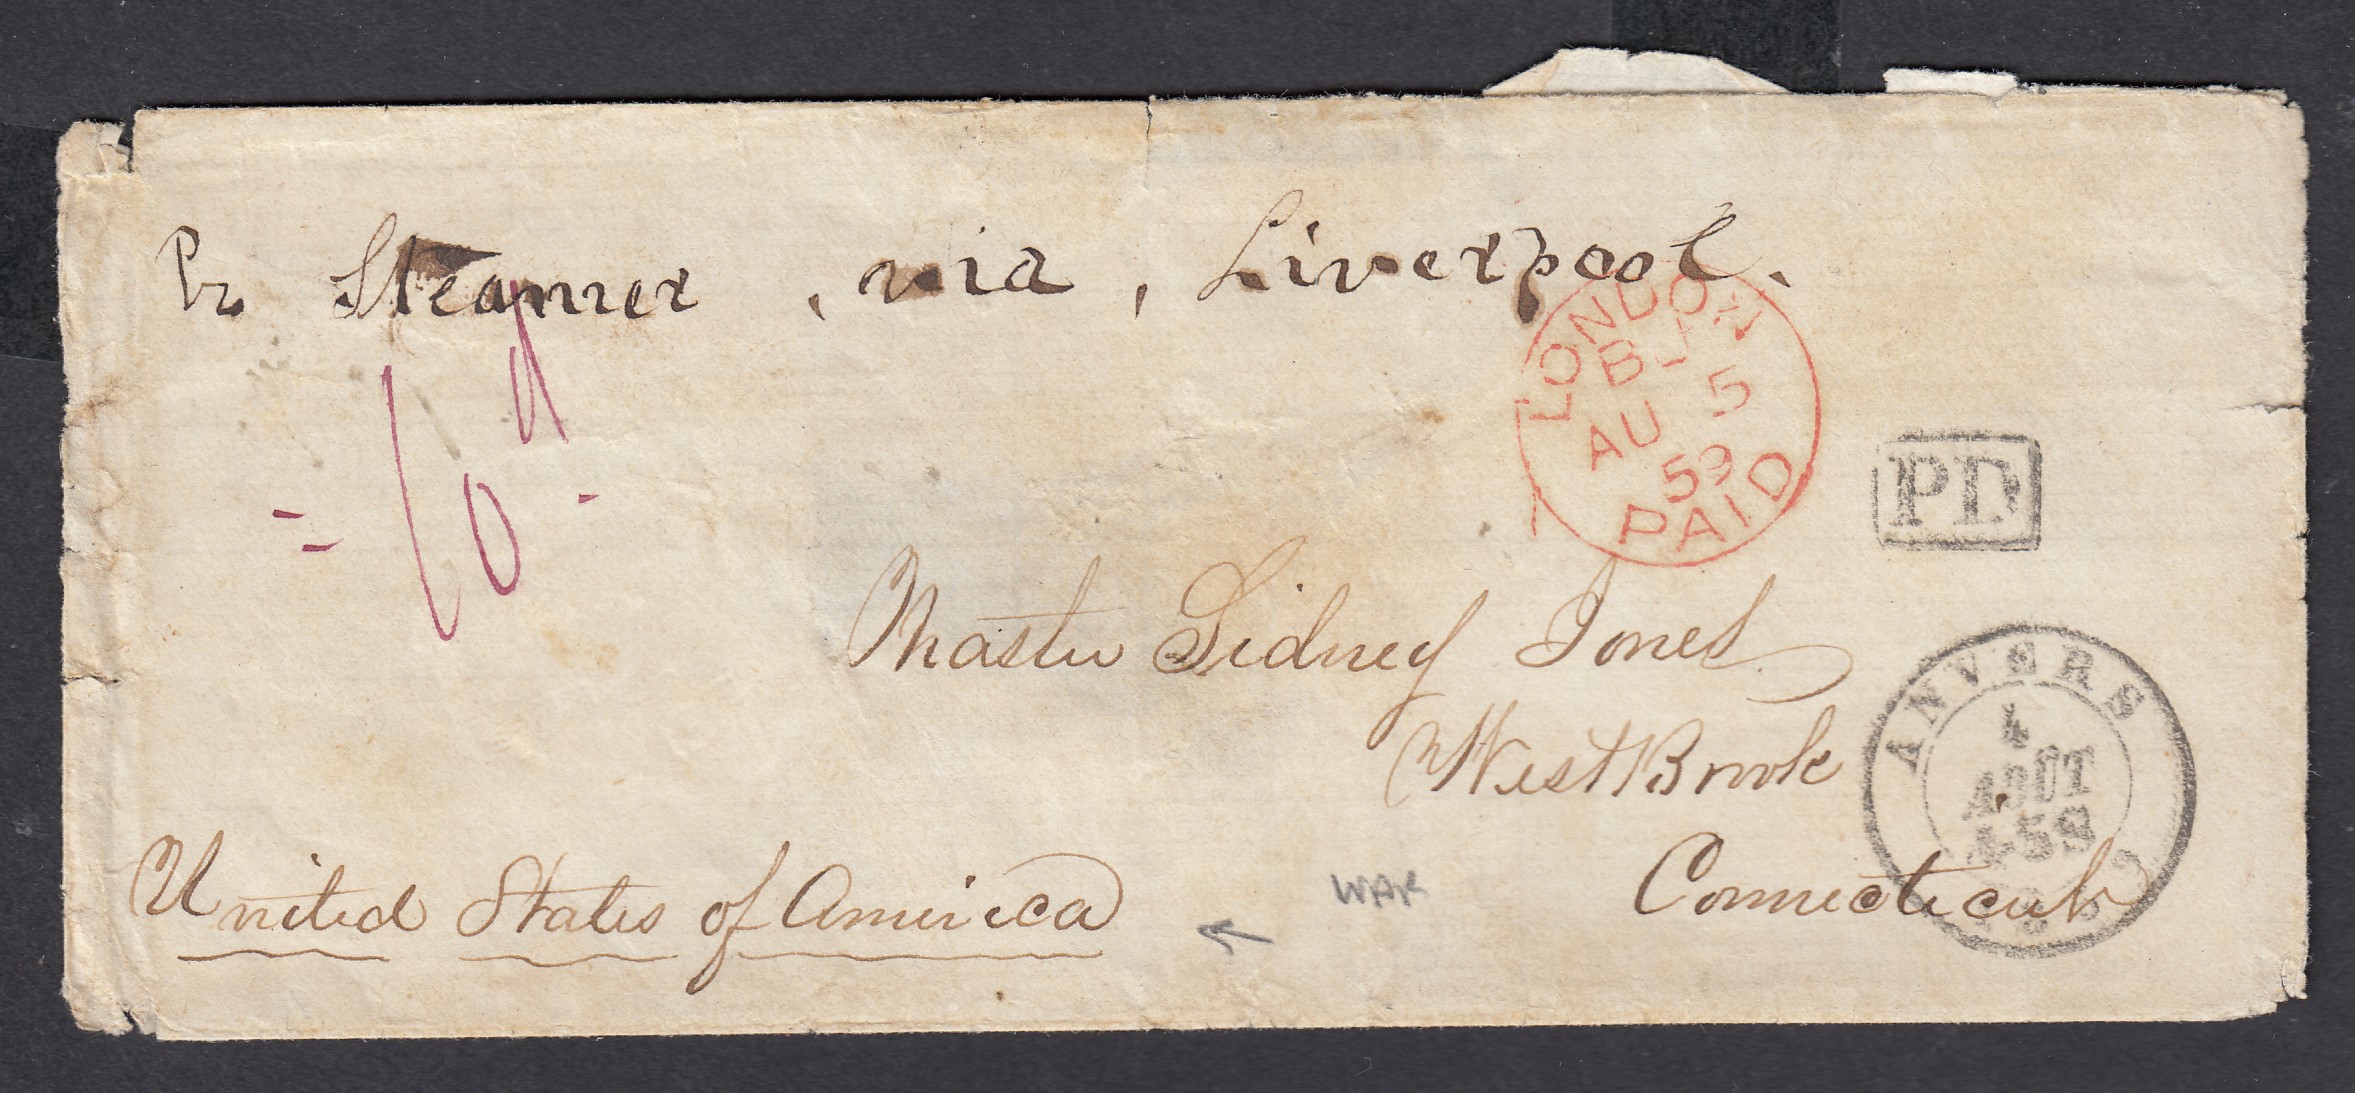 Pr Steamer, via, Liverpool.
LONDON
AU 5
59
PAID
PD
Master Sidney Jones
West Brook
ANVERS
4
AOUT
Connecticut
United States of America
WAR